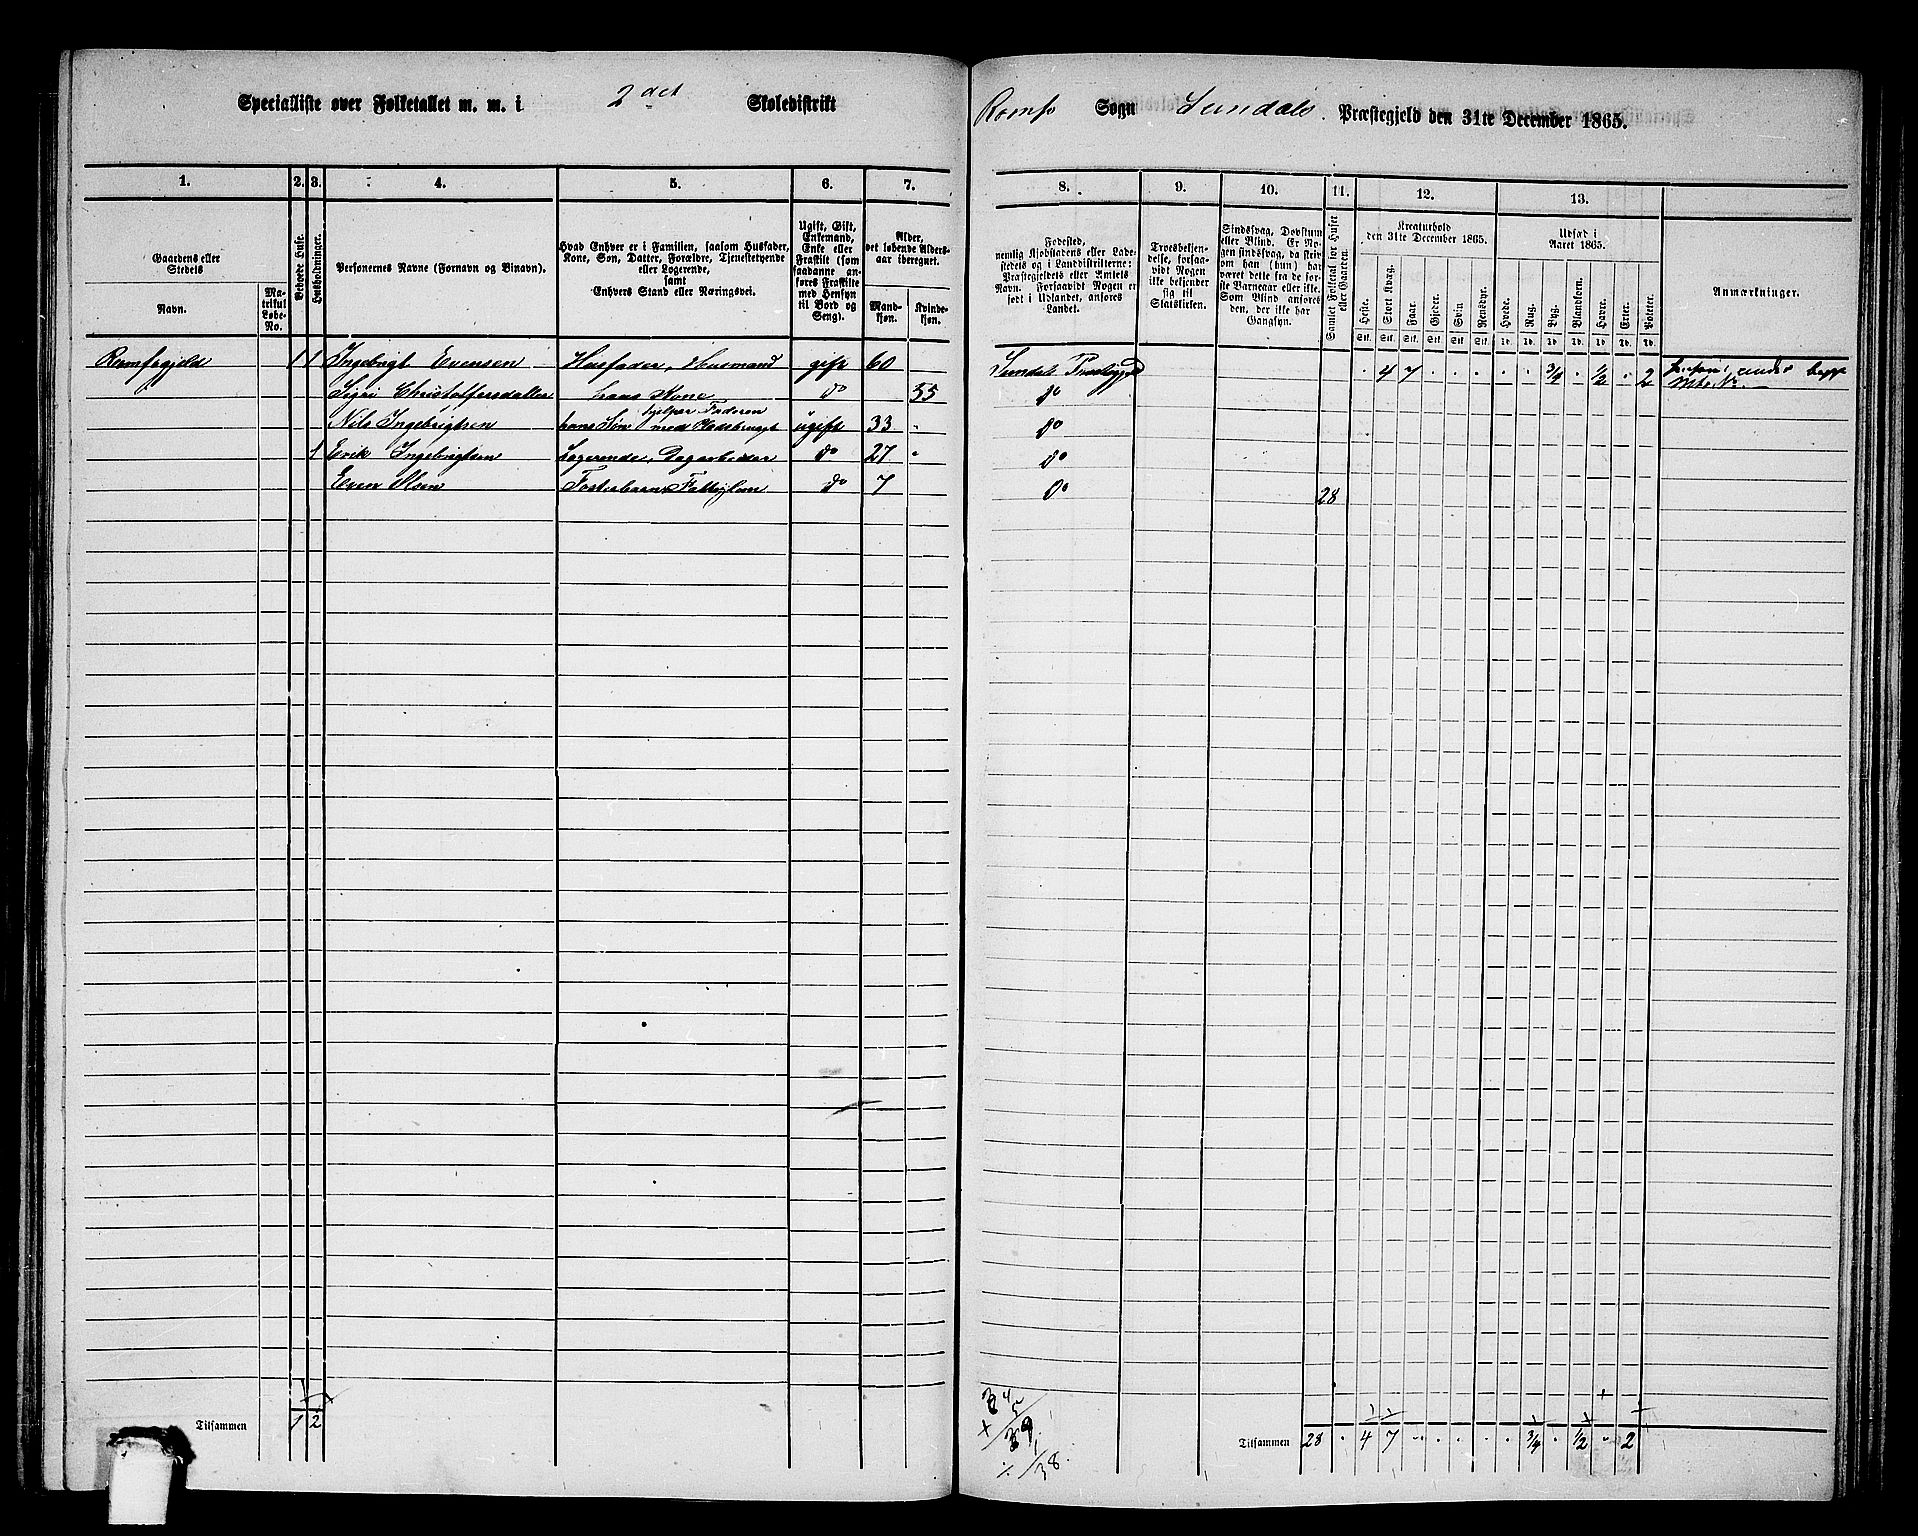 Specialliste over Folketallet m. m. i 2det Skoledistrikt
Romfo Sogn Sundals Præstegjeld den 31te December 1865.
1. 2. 3. 4. 5. 6. 7.
8. 9. 10. 11. 12. 13.
Gaardens eller Stedets
Navn.
Matrikul Løbe-No.
Beboede Huse.
Husholdninger.
Personernes Navne (Fornavn og Binavn).
Hvad Enhver er i Familien, saasom Husfader, Kone, Søn, Datter, Forældre, Tjenestetyende eller Logerende,
samt
Enhvers Stand eller Næringsvei.
Ugift, Gift, Enkemand, Enke eller Fraskilt (som saadanne anføres Fraskilte med Hensyn til Bord og Seng).
Alder, det løbende Alders-aar iberegnet.
Mandkjøn. Kvindekjøn.
Fødested, nemlig Kjøbstadens eller Ladestedets og i Landdistrikterne: Præstegjeldets eller Amtets Navn. Forsaavidt Nogen er født i Udlandet, anføres Landet.
Troesbekjendelse, forsaavidt Nogen ikke bekjender sig til Statskirken.
Sindssvag, Døvstum eller Blind. Er Nogen sindssvag, da skrives om han (hun) har været dette fra de første Barneaar eller ikke. Som Blind anføres den, der ikke har Gangsyn.
Samlet Folketal for Huset eller Gaarden.
Kreaturhold den 31te December 1865.
Heste. Stort Kvæg. Faar. Gjeder. Svin Rensdyr.
Stk. Stk. Stk. Stk. Stk. Stk.
Udsæd i Aaret 1865.
Hvede. Rug. Byg. Blandkorn. Havre. Erter. Poteter.
Td. Td. Td. Td. Td. Td. Td.
Anmærkninger.
Romfogjeld 1 1 Ingebrigt Evensen Husfader, Husmand gift 60 Sundal Præstegjeld . 4 7 . . . . . 3/4 . 1/2 . 2 under
Sigri Christoffersdatter hans Kone do 55 do
hjelper Faderen
Nils Ingebrigtsen hans Søn med Pladsbruget ugift 33 do
1 Erik Ingebrigtsen Logerende, Dagarbeider do 27 do
Even Olsen Fosterbarn, Fattiglem do 7 do 28
Tilsammen 1 2
Tilsammen 28 . 4 7 . . . . . 3/4 . 1/2 . 2